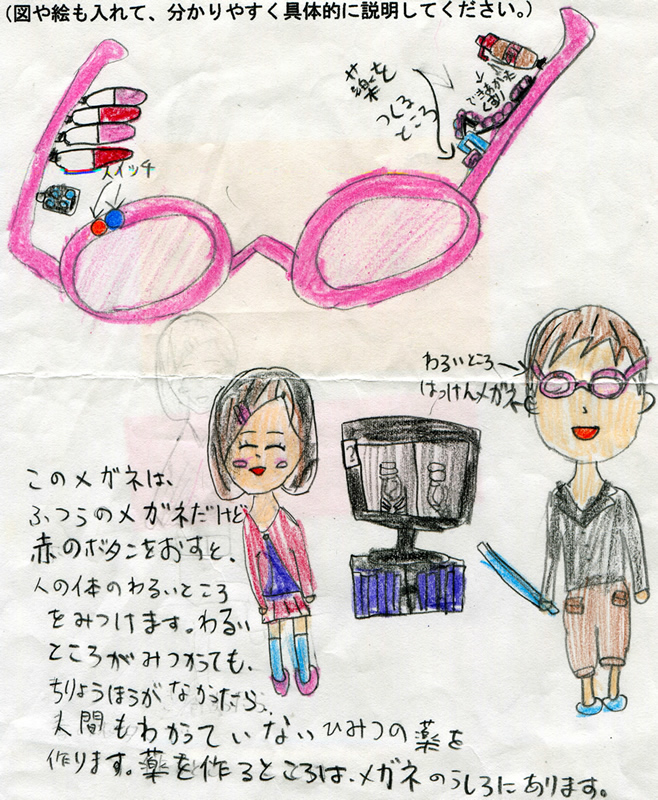 (図や絵も入れて、分かりやすく具体的に説明してください。)
薬を
つくる
ところ
スイッチ
わるいところ
はっけんメガネ
このメガネは、
ふつうのメガネだけど
赤のボタンをおすと、
人の体のわるいところ
をみつけます。わるい
ところがみつかっても、
ちりょうほうがなかったら、
人間もわかっていないひみつの薬を
作ります。薬を作るところは、メガネのうしろにあります。